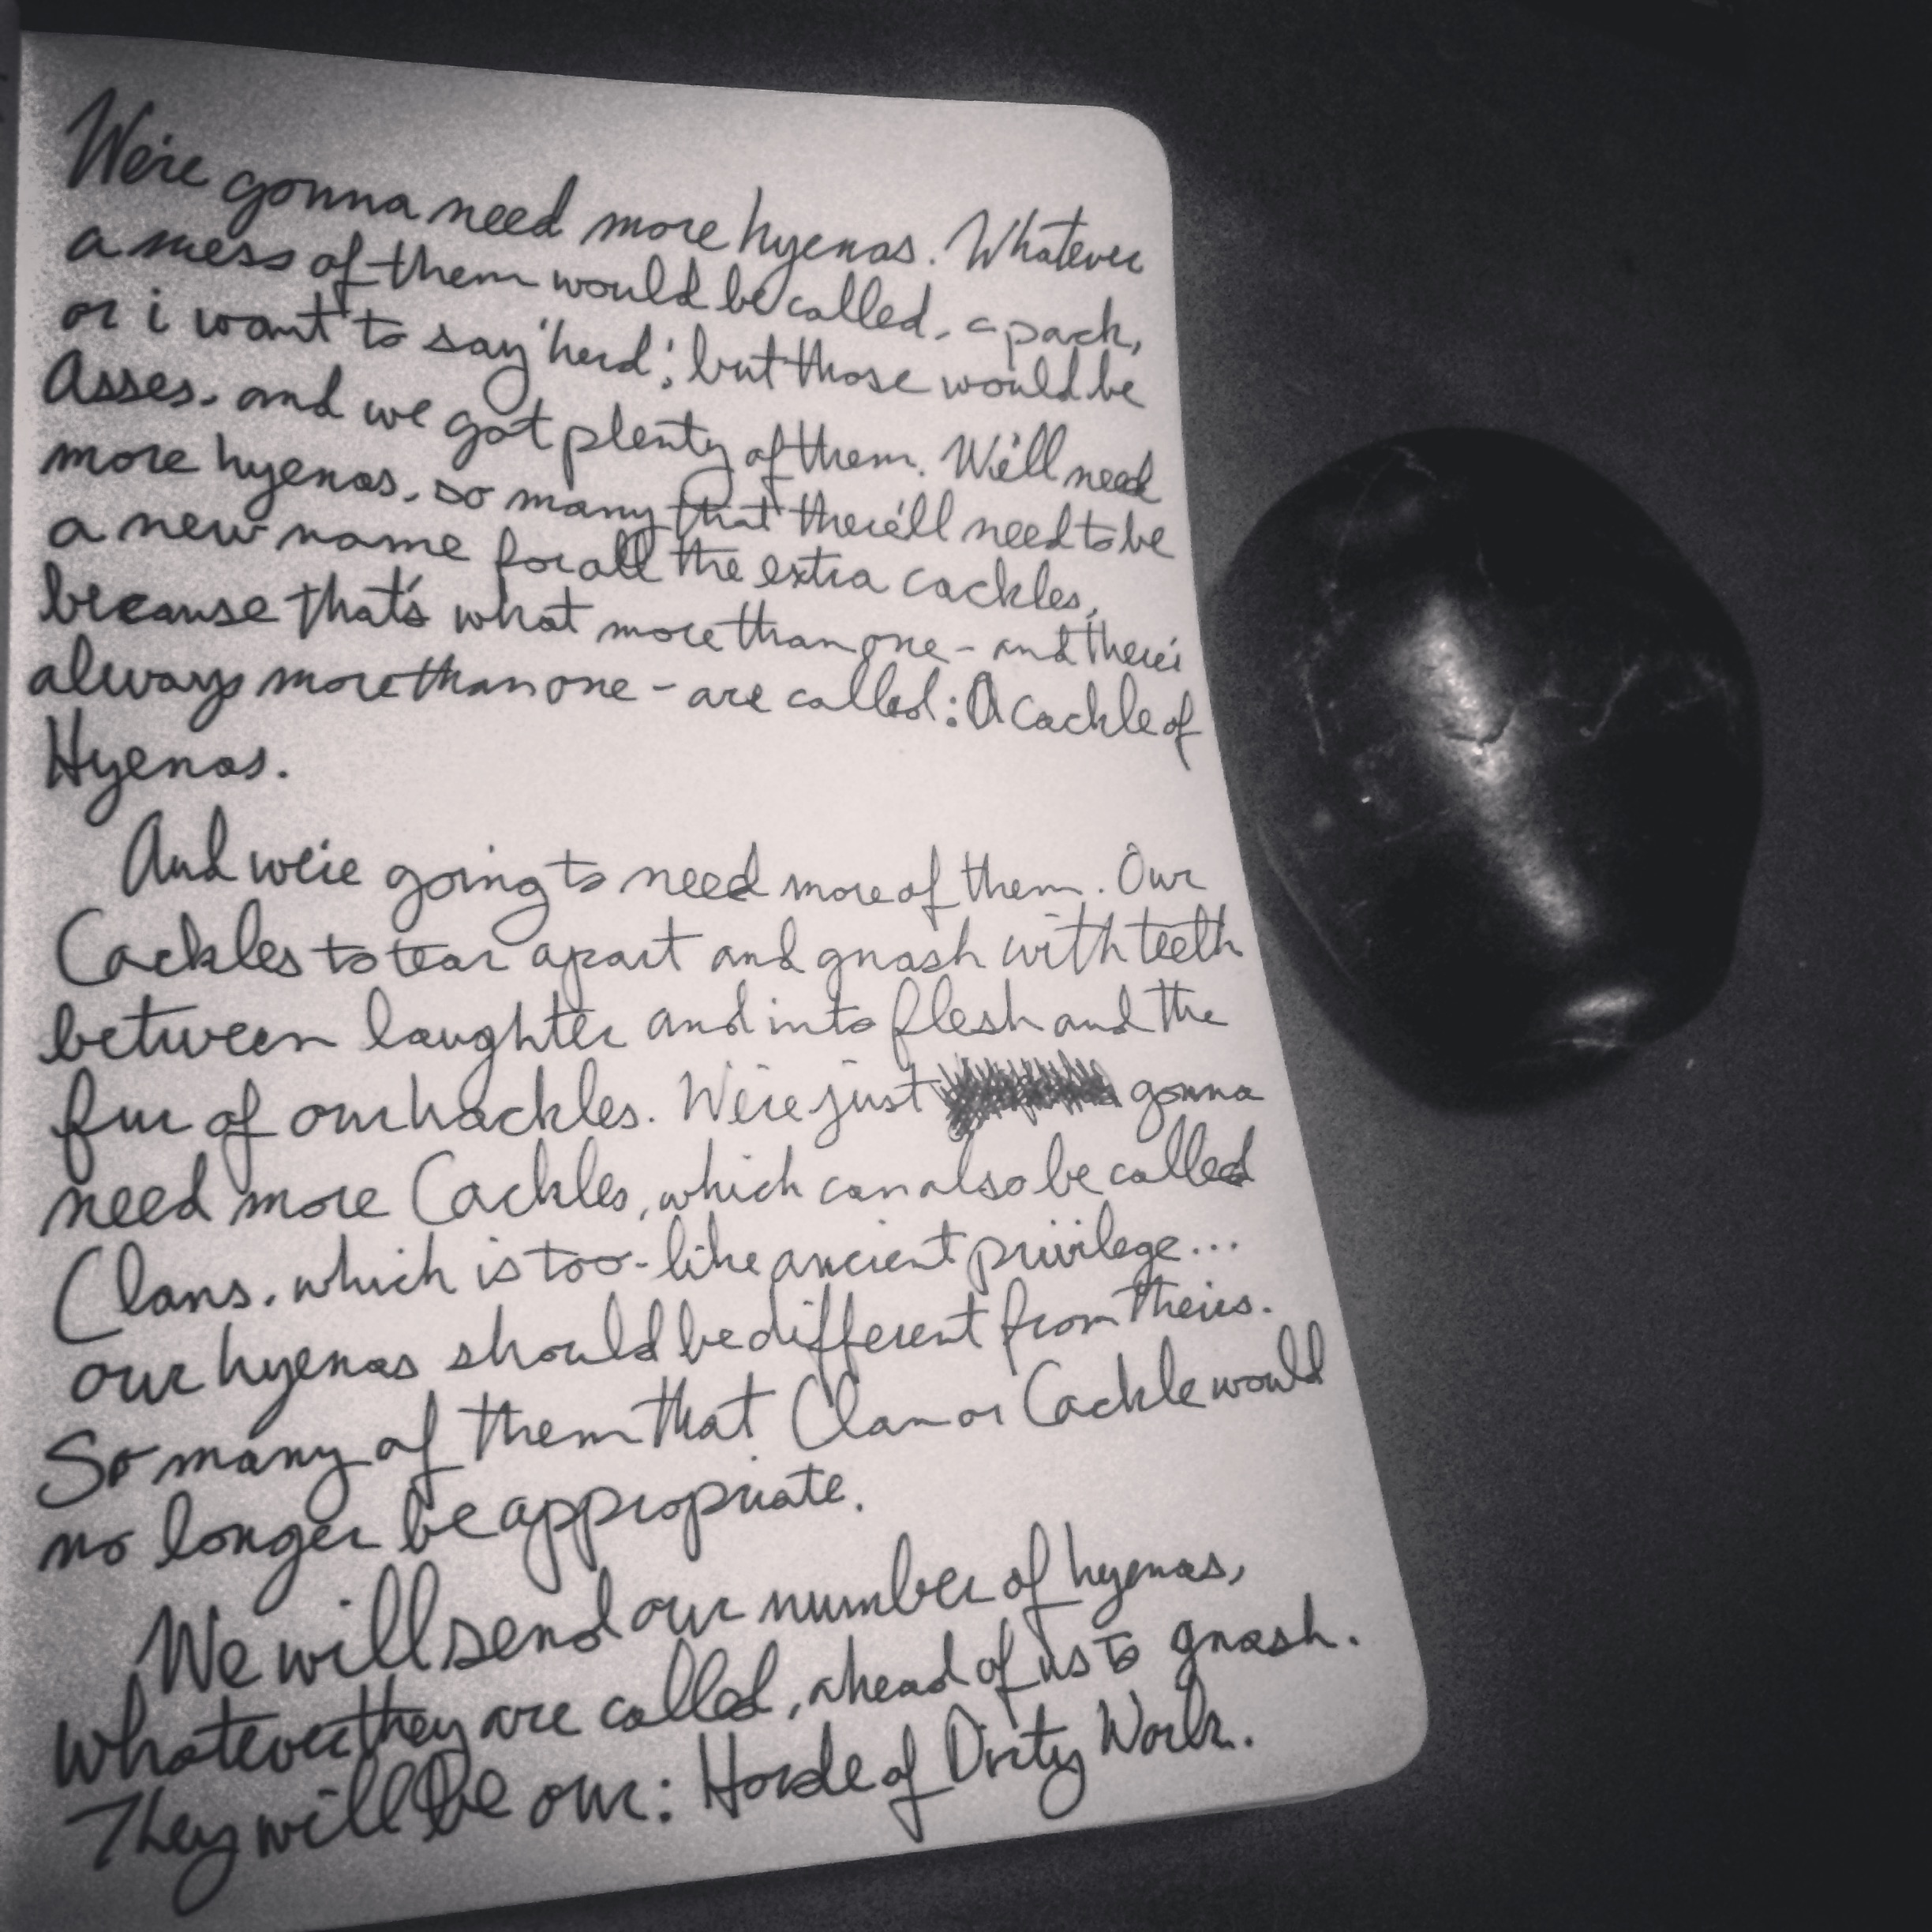 We're gonna need more hyenas. Whatever
a mess of them would be called, a pack,
or i want to say 'herd', but those would be
Asses, and we got plenty of them. We'll need
more hyenas, so many that there'll need to be
a new name for all the extra cackles,
because that's what more than one - and there's
always more than one - are called: A Cackle of
Hyenas.
And we're going to need more of them. Our
Cackles to tear apart and gnash with teeth
between laughter and into flesh and the
fur of our hackles. We're just gonna
need more Cackles, which can also be called
Clans, which is too-like ancient privilege...
our hyenas should be different from theirs.
So many of them that Clan or Cackle would
no longer be appropriate.
We will send our number of hyenas,
whatever they are called, ahead of us to gnash.
They will be our: Horde of Dirty Work.